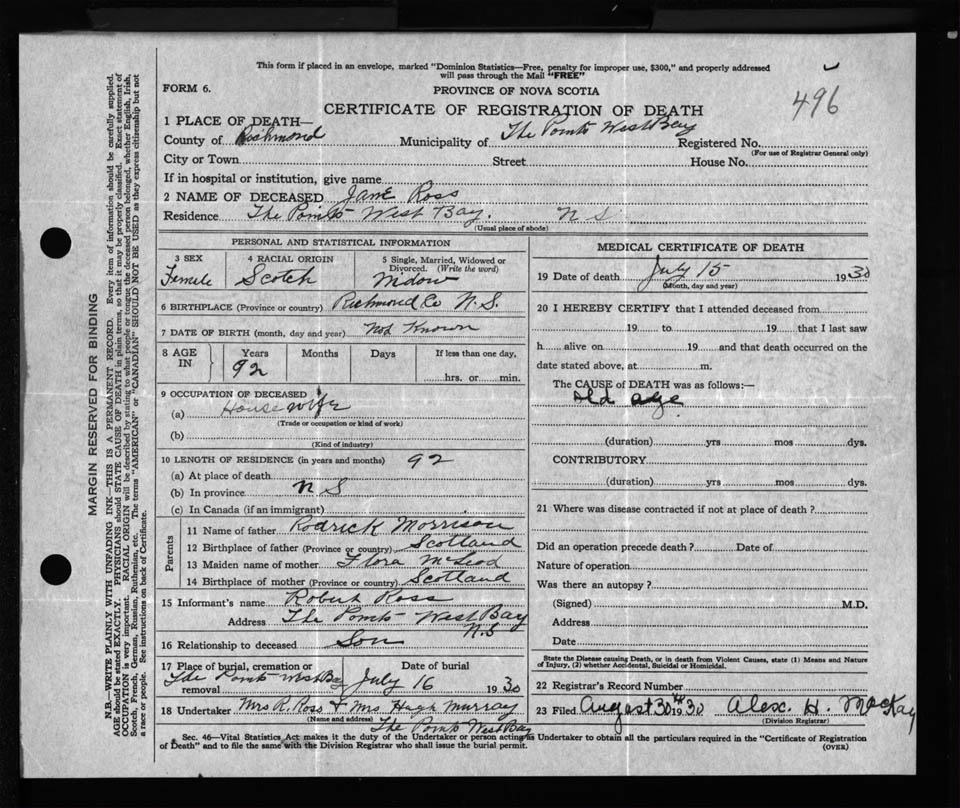 This form if placed in an envelope, marked "Dominion Statistics—Free, penalty for improper use, $300," and properly addressed
will pass through the Mail "FREE"
FORM 6.
PROVINCE OF NOVA SCOTIA
496
CERTIFICATE OF REGISTRATION OF DEATH
1 PLACE OF DEATH—
County of Richmond Municipality of The Points West Bay Registered No.
(For use of Registrar General only)
City or Town Street House No.
If in hospital or institution, give name
2 NAME OF DECEASED Jane Ross
Residence The Points West Bay. N S
(Usual place of abode)
PERSONAL AND STATISTICAL INFORMATION
3 SEX 4 RACIAL ORIGIN 5 Single, Married, Widowed or
Divorced. (Write the word)
Female Scotch Widow
6 BIRTHPLACE (Province or country) Richmond Co N.S.
7 DATE OF BIRTH (month, day and year) Not Known
8 AGE IN Years Months Days If less than one day,
92 hrs. or min.
9 OCCUPATION OF DECEASED
(a) Housewife
(Trade or occupation or kind of work)
(b)
(Kind of industry)
10 LENGTH OF RESIDENCE (in years and months) 92
(a) At place of death
(b) In province N S
(c) In Canada (if an immigrant)
Parents
11 Name of father Rodrick Morrison
12 Birthplace of father (Province or country) Scotland
13 Maiden name of mother Flora McLeod
14 Birthplace of mother (Province or country) Scotland
15 Informant's name Robert Ross
Address The Points West Bay
N.S
16 Relationship to deceased Son
17 Place of burial, cremation or removal Date of burial
The Points West Bay July 16 1930
18 Undertaker Mrs R. Ross & Mrs Hugh Murray
(Name and address) The Points West Bay
MEDICAL CERTIFICATE OF DEATH
19 Date of death July 15 1930
(Month, day and year)
20 I HEREBY CERTIFY that I attended deceased from
19 to 19 that I last saw
h alive on 19 and that death occurred on the
date stated above, at m.
The CAUSE of DEATH was as follows:—
old age
(duration) yrs mos dys.
CONTRIBUTORY
(duration) yrs mos dys.
21 Where was disease contracted if not at place of death?
Did an operation precede death? Date of
Nature of operation
Was there an autopsy?
(Signed) M.D.
Address
Date
State the Disease causing Death, or in death from Violent Causes, state (1) Means and Nature
of Injury, (2) whether Accidental, Suicidal or Homicidal.
22 Registrar's Record Number
23 Filed August 30th 1930 Alex. H. MacKay
(Division Registrar)
Sec. 46—Vital Statistics Act makes it the duty of the Undertaker or person acting as Undertaker to obtain all the particulars required in the "Certificate of Registration
of Death" and to file the same with the Division Registrar who shall issue the burial permit.
(OVER)
MARGIN RESERVED FOR BINDING
N.B.—WRITE PLAINLY WITH UNFADING INK—THIS IS A PERMANENT RECORD. Every item of information should be carefully supplied.
AGE should be stated EXACTLY. PHYSICIANS should STATE CAUSE OF DEATH in plain terms, so that it may be properly classified. Exact statement of
OCCUPATION is very important. RACIAL ORIGIN will be described by stating to what people or tongue the deceased person belonged, whether English, Irish,
Scotch, French, German, Russian, Ruthenian, etc. The terms "AMERICAN" or "CANADIAN" SHOULD NOT BE USED as they express citizenship but not
a race or people. See instructions on back of Certificate.